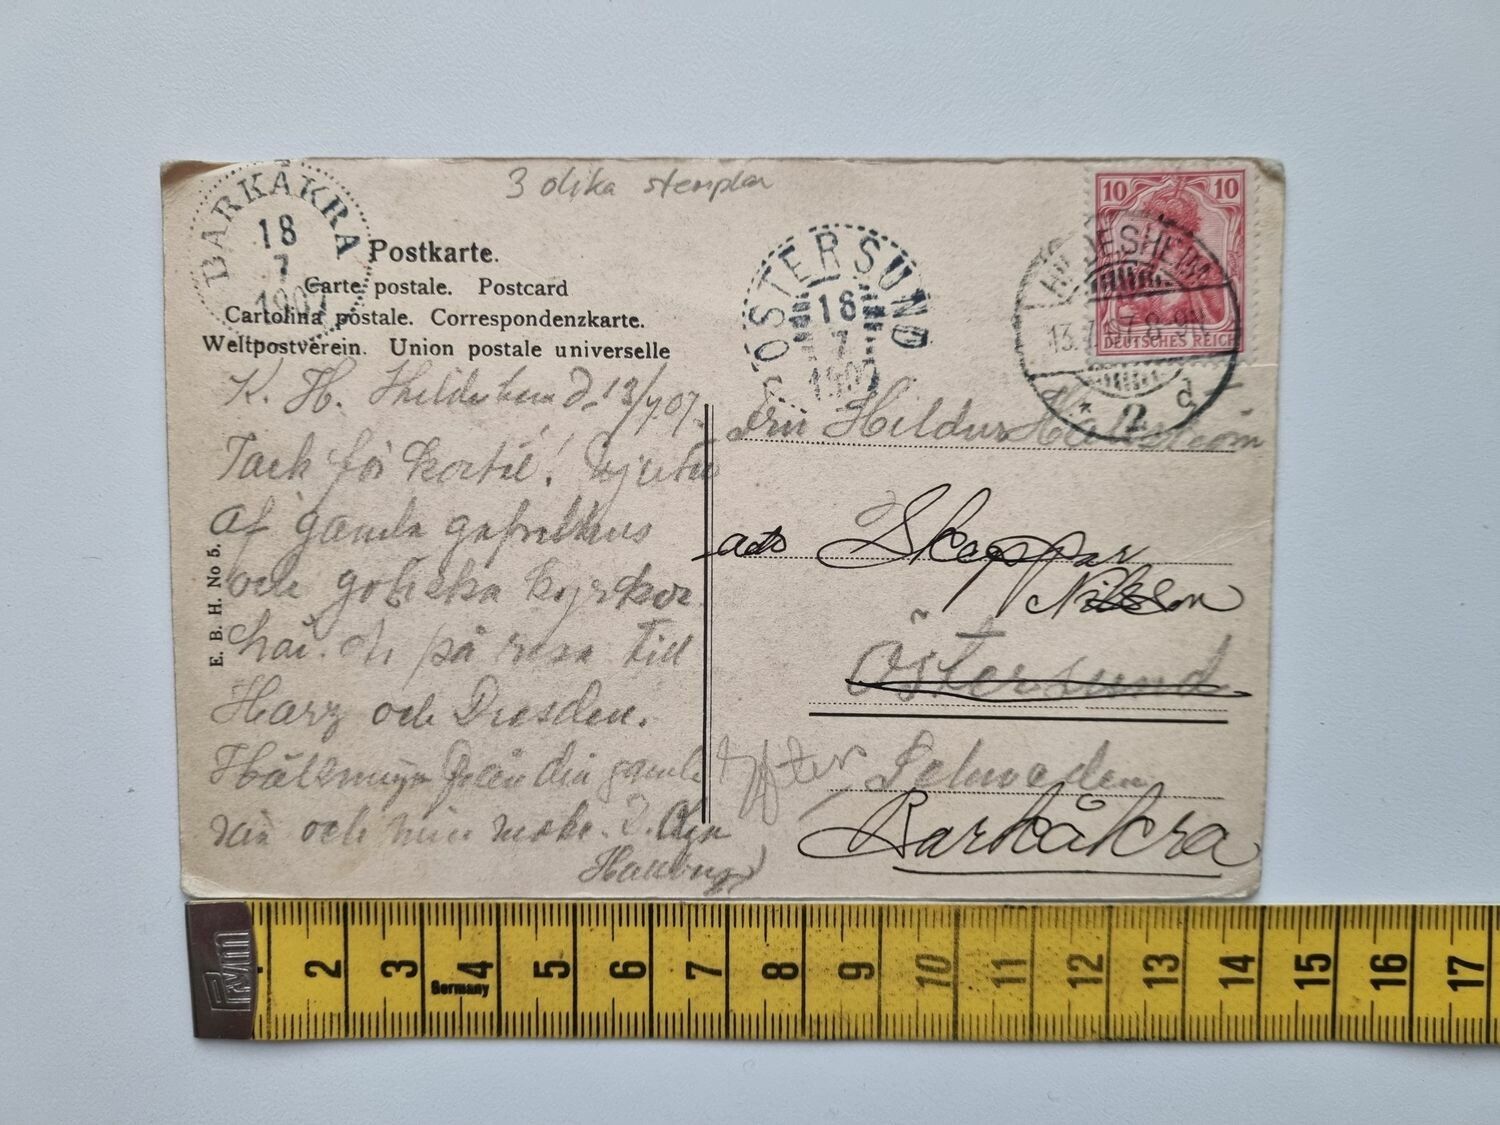 3 olika stemplar
BARKÅKRA
18
7
1907
Postkarte.
Carte postale. Postcard
Cartolina postale. Correspondenzkarte.
Weltpostverein. Union postale universelle
ÖSTERSUND
16
7
1907
10 10
DEUTSCHES REICH
HILDESHEIM
13.7.07. 8-9N
* 2 d
K. H. d. 13/7.07.
Tack för kortet! Njuter
af gamla
och gotiska kyrkor
här. på resa till
Harz och Dresden.
din gamle
vän och min
E. B. H. No 5.
Fru Hildur Hallström
adr Skeppar
Nilsson
Östersund
Schweden
Barkåkra
Germany
2 3 4 5 6 7 8 9 10 11 12 13 14 15 16 17